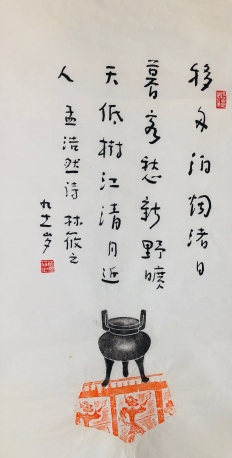 移舟泊烟渚日
暮客愁新野旷
天低树江清月近
人 孟浩然诗 林筱之
九十一岁